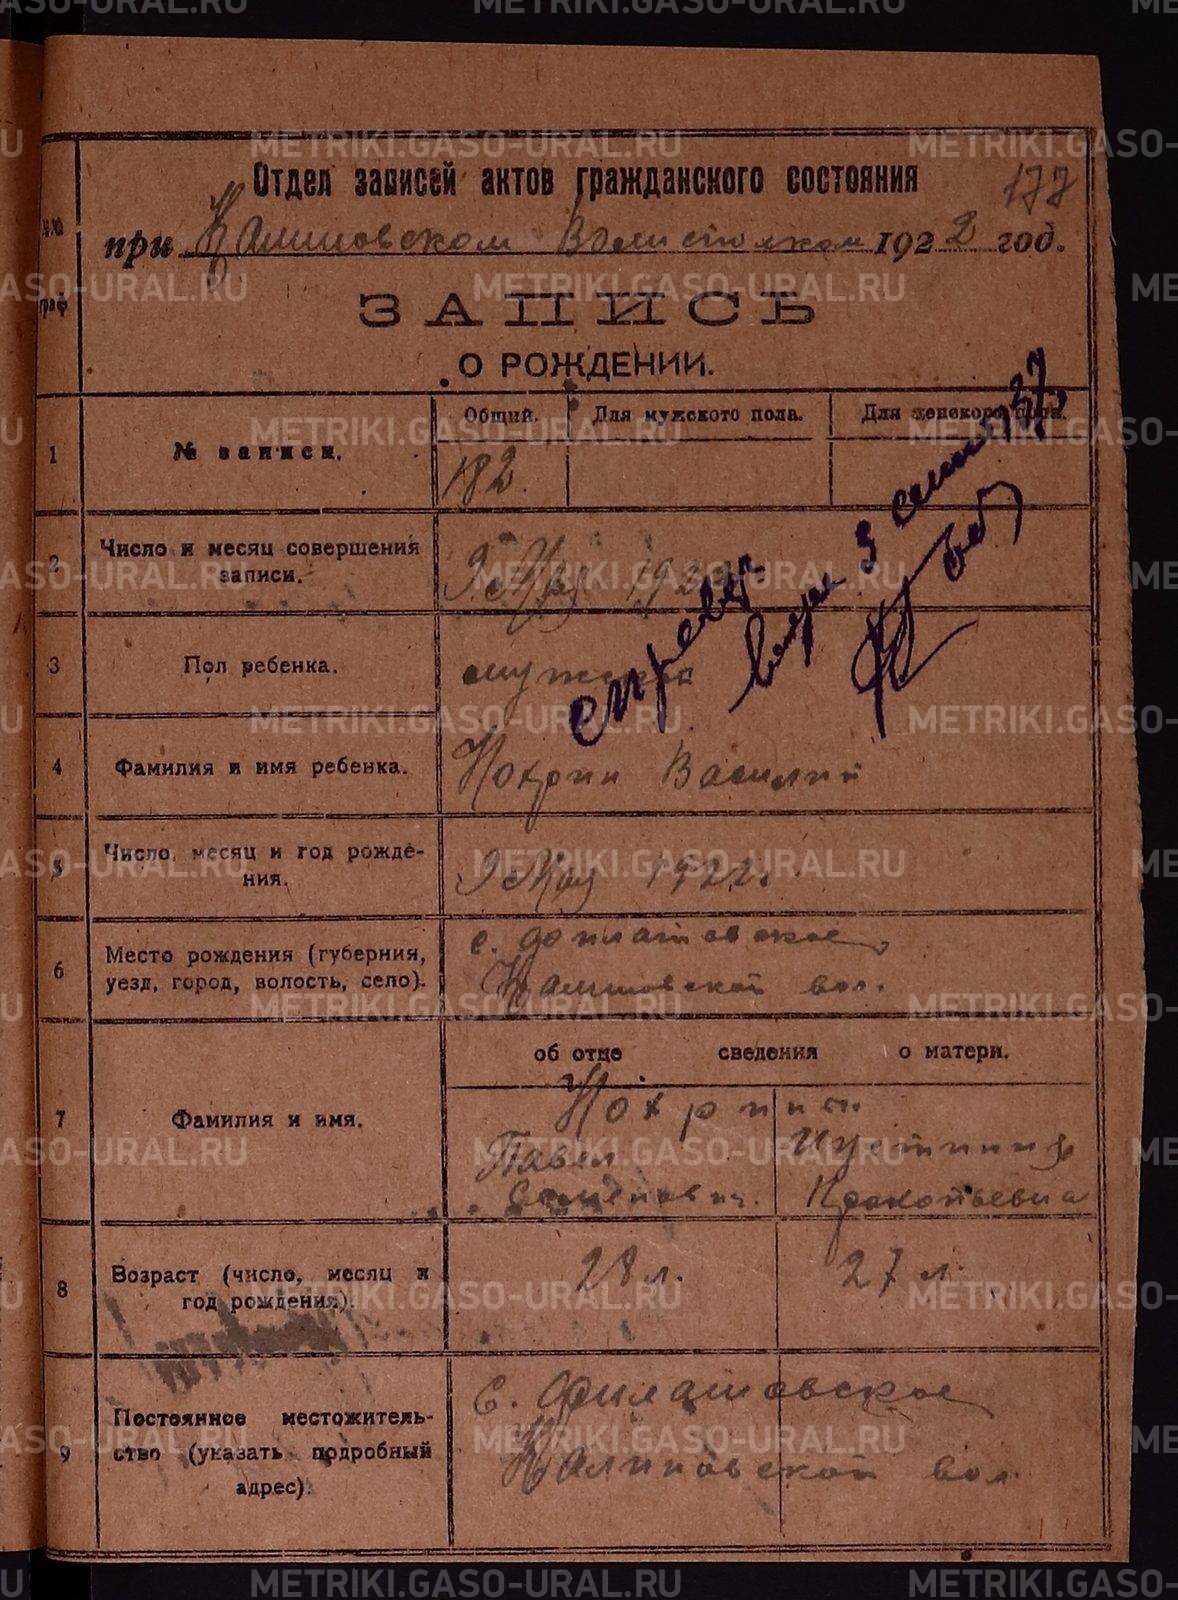 Отдел записей актов гражданского состояния
177
при Калиновском Волисполкоме 1922 год.
№№ граф
ЗАПИСЬ
О РОЖДЕНИИ.
1
№ записи.
Общий.
Для мужского пола.
Для женского пола.
182.
2
Число и месяц совершения
записи.
9 Мая 1922
3
Пол ребенка.
мужского
4
Фамилия и имя ребенка.
Нохрин Василий
5
Число, месяц и год рожде-
ния.
9 Мая 1922 г.
6
Место рождения (губерния,
уезд, город, волость, село).
с. Филатовское,
Калиновской вол.
справка
выдана 3 сент 37
об отце сведения о матери.
7
Фамилия и имя.
Нохрины.
Павел
Семенович.
Иустиния
Прокопьевна
8
Возраст (число, месяц и
год рождения).
28 л.
27 л.
9
Постоянное местожитель-
ство (указать подробный
адрес).
С. Филатовское
Калиновской вол.
METRIKI.GASO-URAL.RU